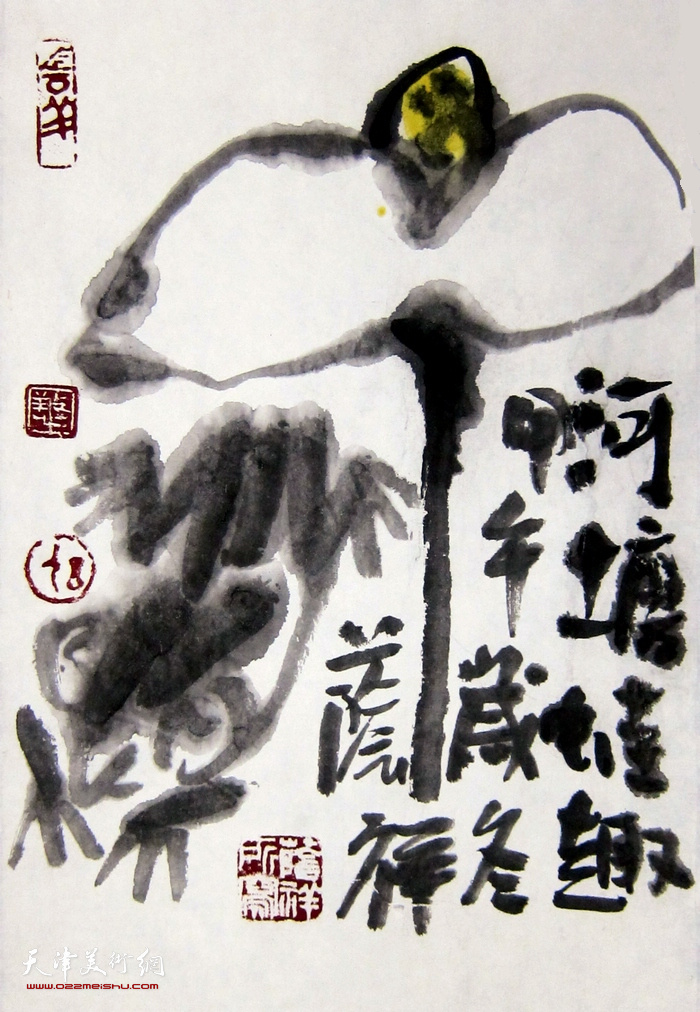 河塘蛙趣
甲午歲冬
蔭祥
天津美術網
www.022meishu.com